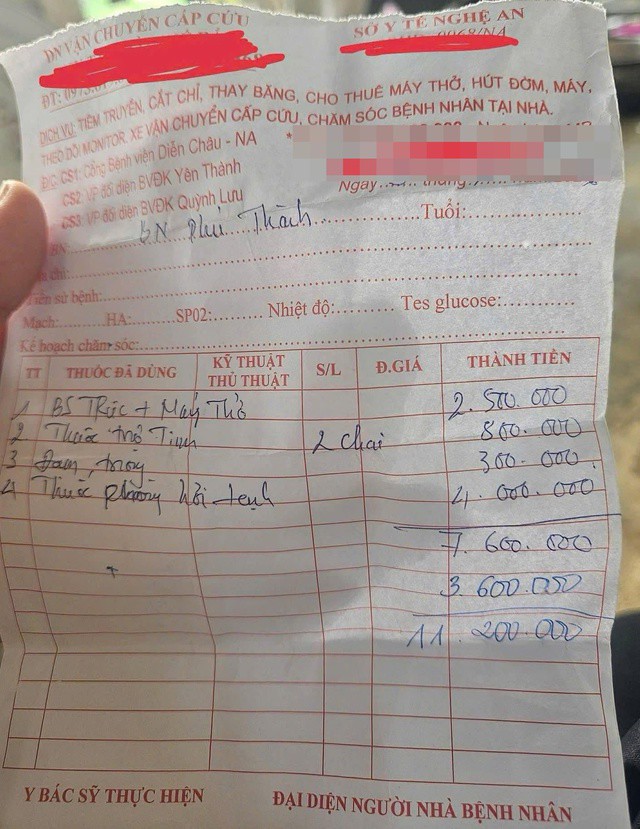 DN VẬN CHUYỂN CẤP CỨU
SỞ Y TẾ NGHỆ AN
ĐT: 0973.
0068/NA
DỊCH VỤ: TIÊM TRUYỀN, CẮT CHỈ, THAY BĂNG, CHO THUÊ MÁY THỞ, HÚT ĐỜM, MÁY,
THEO DÕI MONITOR. XE VẬN CHUYỂN CẤP CỨU, CHĂM SÓC BỆNH NHÂN TẠI NHÀ.
Đ/C: CS1: Cổng Bệnh viện Diễn Châu - NA *
CS2: VP đối diện BVĐK Yên Thành
CS3: VP đối diện BVĐK Quỳnh Lưu
Ngày..... tháng
BN: BN Phú Thành Tuổi:
chỉ:
Tiền sử bệnh:
Mạch: HA: SP02: Nhiệt độ: Tes glucose:
Kế hoạch chăm sóc:
TT THUỐC ĐÃ DÙNG KỸ THUẬT THỦ THUẬT S/L Đ.GIÁ THÀNH TIỀN
1 BS Trực + Máy Thở 2.500.000
2 Thuốc trợ Tim 2 chai 800.000
3 300.000
4 Thuốc phòng hồi 4.000.000
7.600.000
3.600.000
11.200.000
Y BÁC SỸ THỰC HIỆN ĐẠI DIỆN NGƯỜI NHÀ BỆNH NHÂN